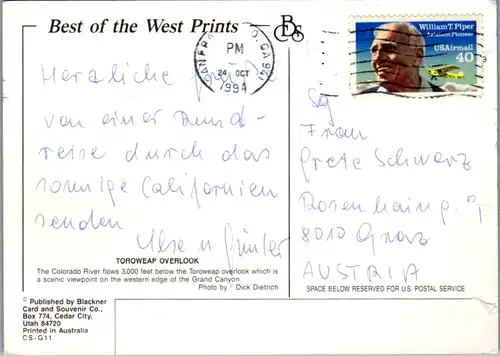 Best of the West Prints
BCS
SAN FRANCISCO, CA 941
PM
24 OCT
1994
William T. Piper
Aviation Pioneer
USAirmail
40
Herzliche Grüße
von einer Rund-
reise durch das
sonnige Californien
senden
Ilse u Günter
Frau
Grete Schwarz
Rosenhaing.
8010 Graz
AUSTRIA
TOROWEAP OVERLOOK
The Colorado River flows 3,000 feet below the Toroweap overlook which is
a scenic viewpoint on the western edge of the Grand Canyon.
Photo by © Dick Dietrich
SPACE BELOW RESERVED FOR U.S. POSTAL SERVICE
© Published by Blackner
Card and Souvenir Co.,
Box 774, Cedar City,
Utah 84720
Printed in Australia
CS-G11